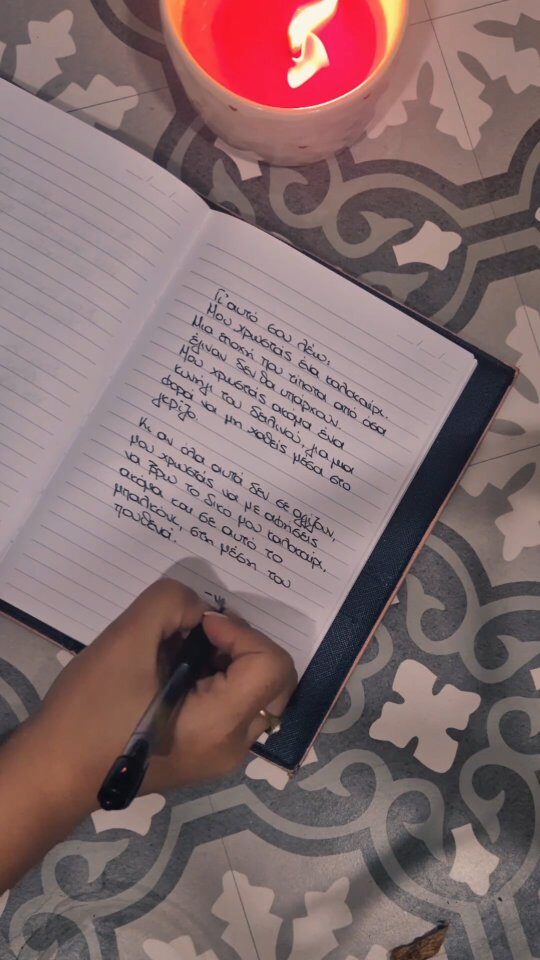 Γι'αυτό σου λέω,
Μου χρωστάς ένα καλοκαίρι.
Μια εποχή που τίποτα από όσα
έγιναν δεν θα υπάρχουν.
Μου χρωστάς ακόμα ένα
κυνήγι του δειλινού, για μια
φορά να μη χαθείς μέσα στο
γκρίζο.
Κι αν όλα αυτά δεν σε αγγίζουν,
μου χρωστάς να με αφήσεις
να ξέρω το δικό μου καλοκαίρι.
ακόμα και σε αυτό το
μπαλκόνι, στη μέση του
πουθενά.